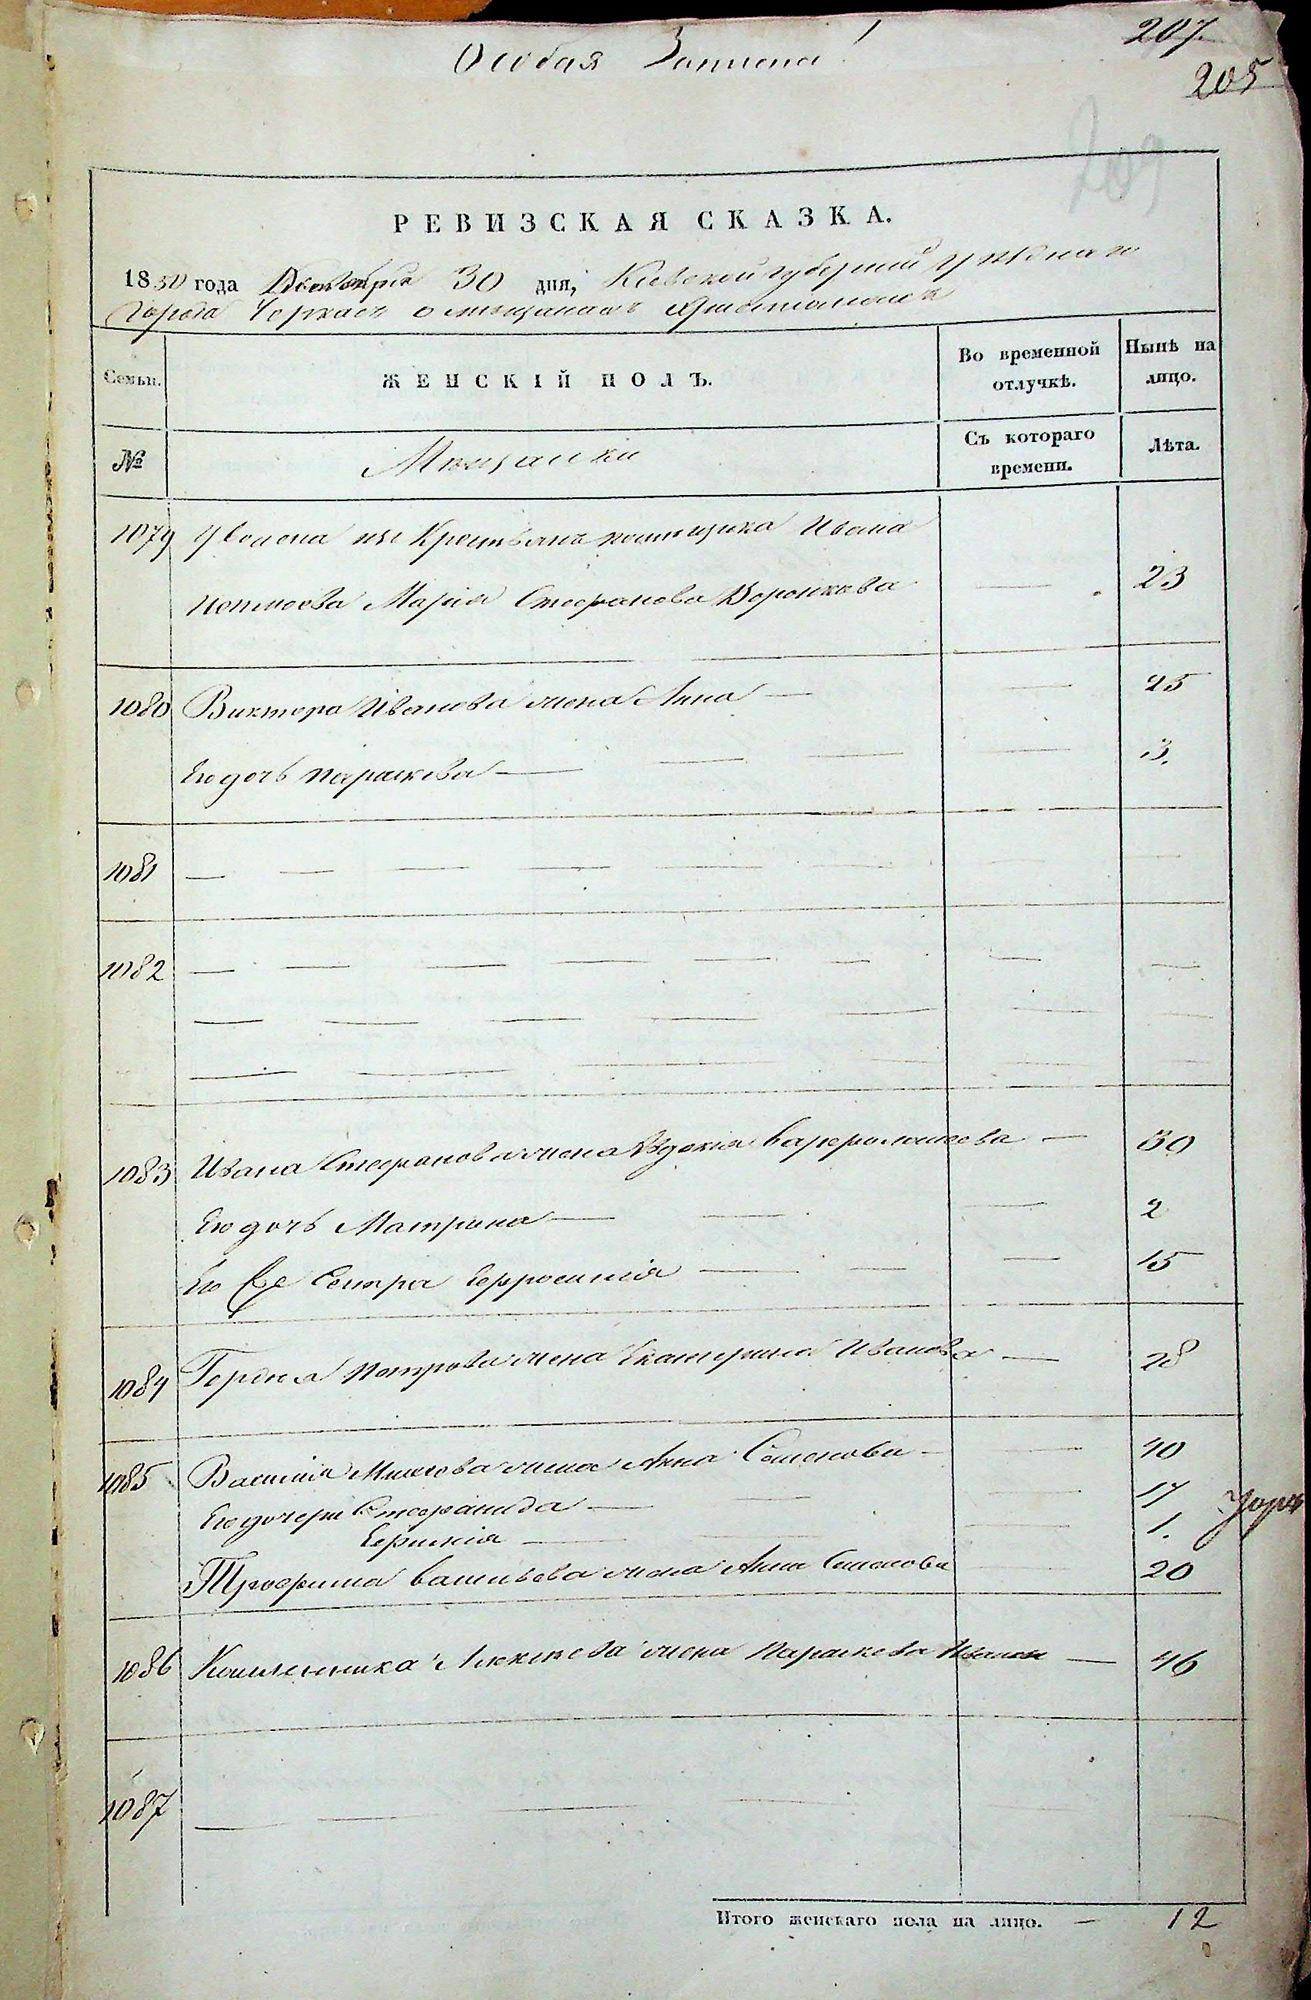 Особая Записка
207
205
209
РЕВИЗСКАЯ СКАЗКА.
1850 года Декабря 30 дня, Киевской губернии уезднаго
города Черкас о мещанах христианах
Семьи.
ЖЕНСКІЙ ПОЛЪ.
Во временной отлучкѣ.
Нынѣ на лицо.
№
Мещанки
Съ котораго времени.
Лѣта.
1079 Уволена из Крестьянъ помещика Ивана
Мария Стефанова Воронкова — 23
1080 Виктора Иванова жена Анна — — 25
Его дочь Параскева — — — — 3.
1081 — — — — — — — —
1082 — — — — — — — —
— — — — — — — —
— — — — — — —
1083 Ивана Стефанова жена Авдокія Варфоломеева — 30
Его дочь Матрина — — — 2
Его Сестра Ефросинія — — — 15
1084 Петрова жена Екатерина Иванова — 28
1085 Василия жена Анна Семенова — — 40
Его дочери Стефанида — — — 17
— — — 1.
Трофима Васильева жена Анна — 20
1086 Алексеева жена Параскева — 46
1087 — — — — — — —
Итого женскаго пола на лицо. — 12